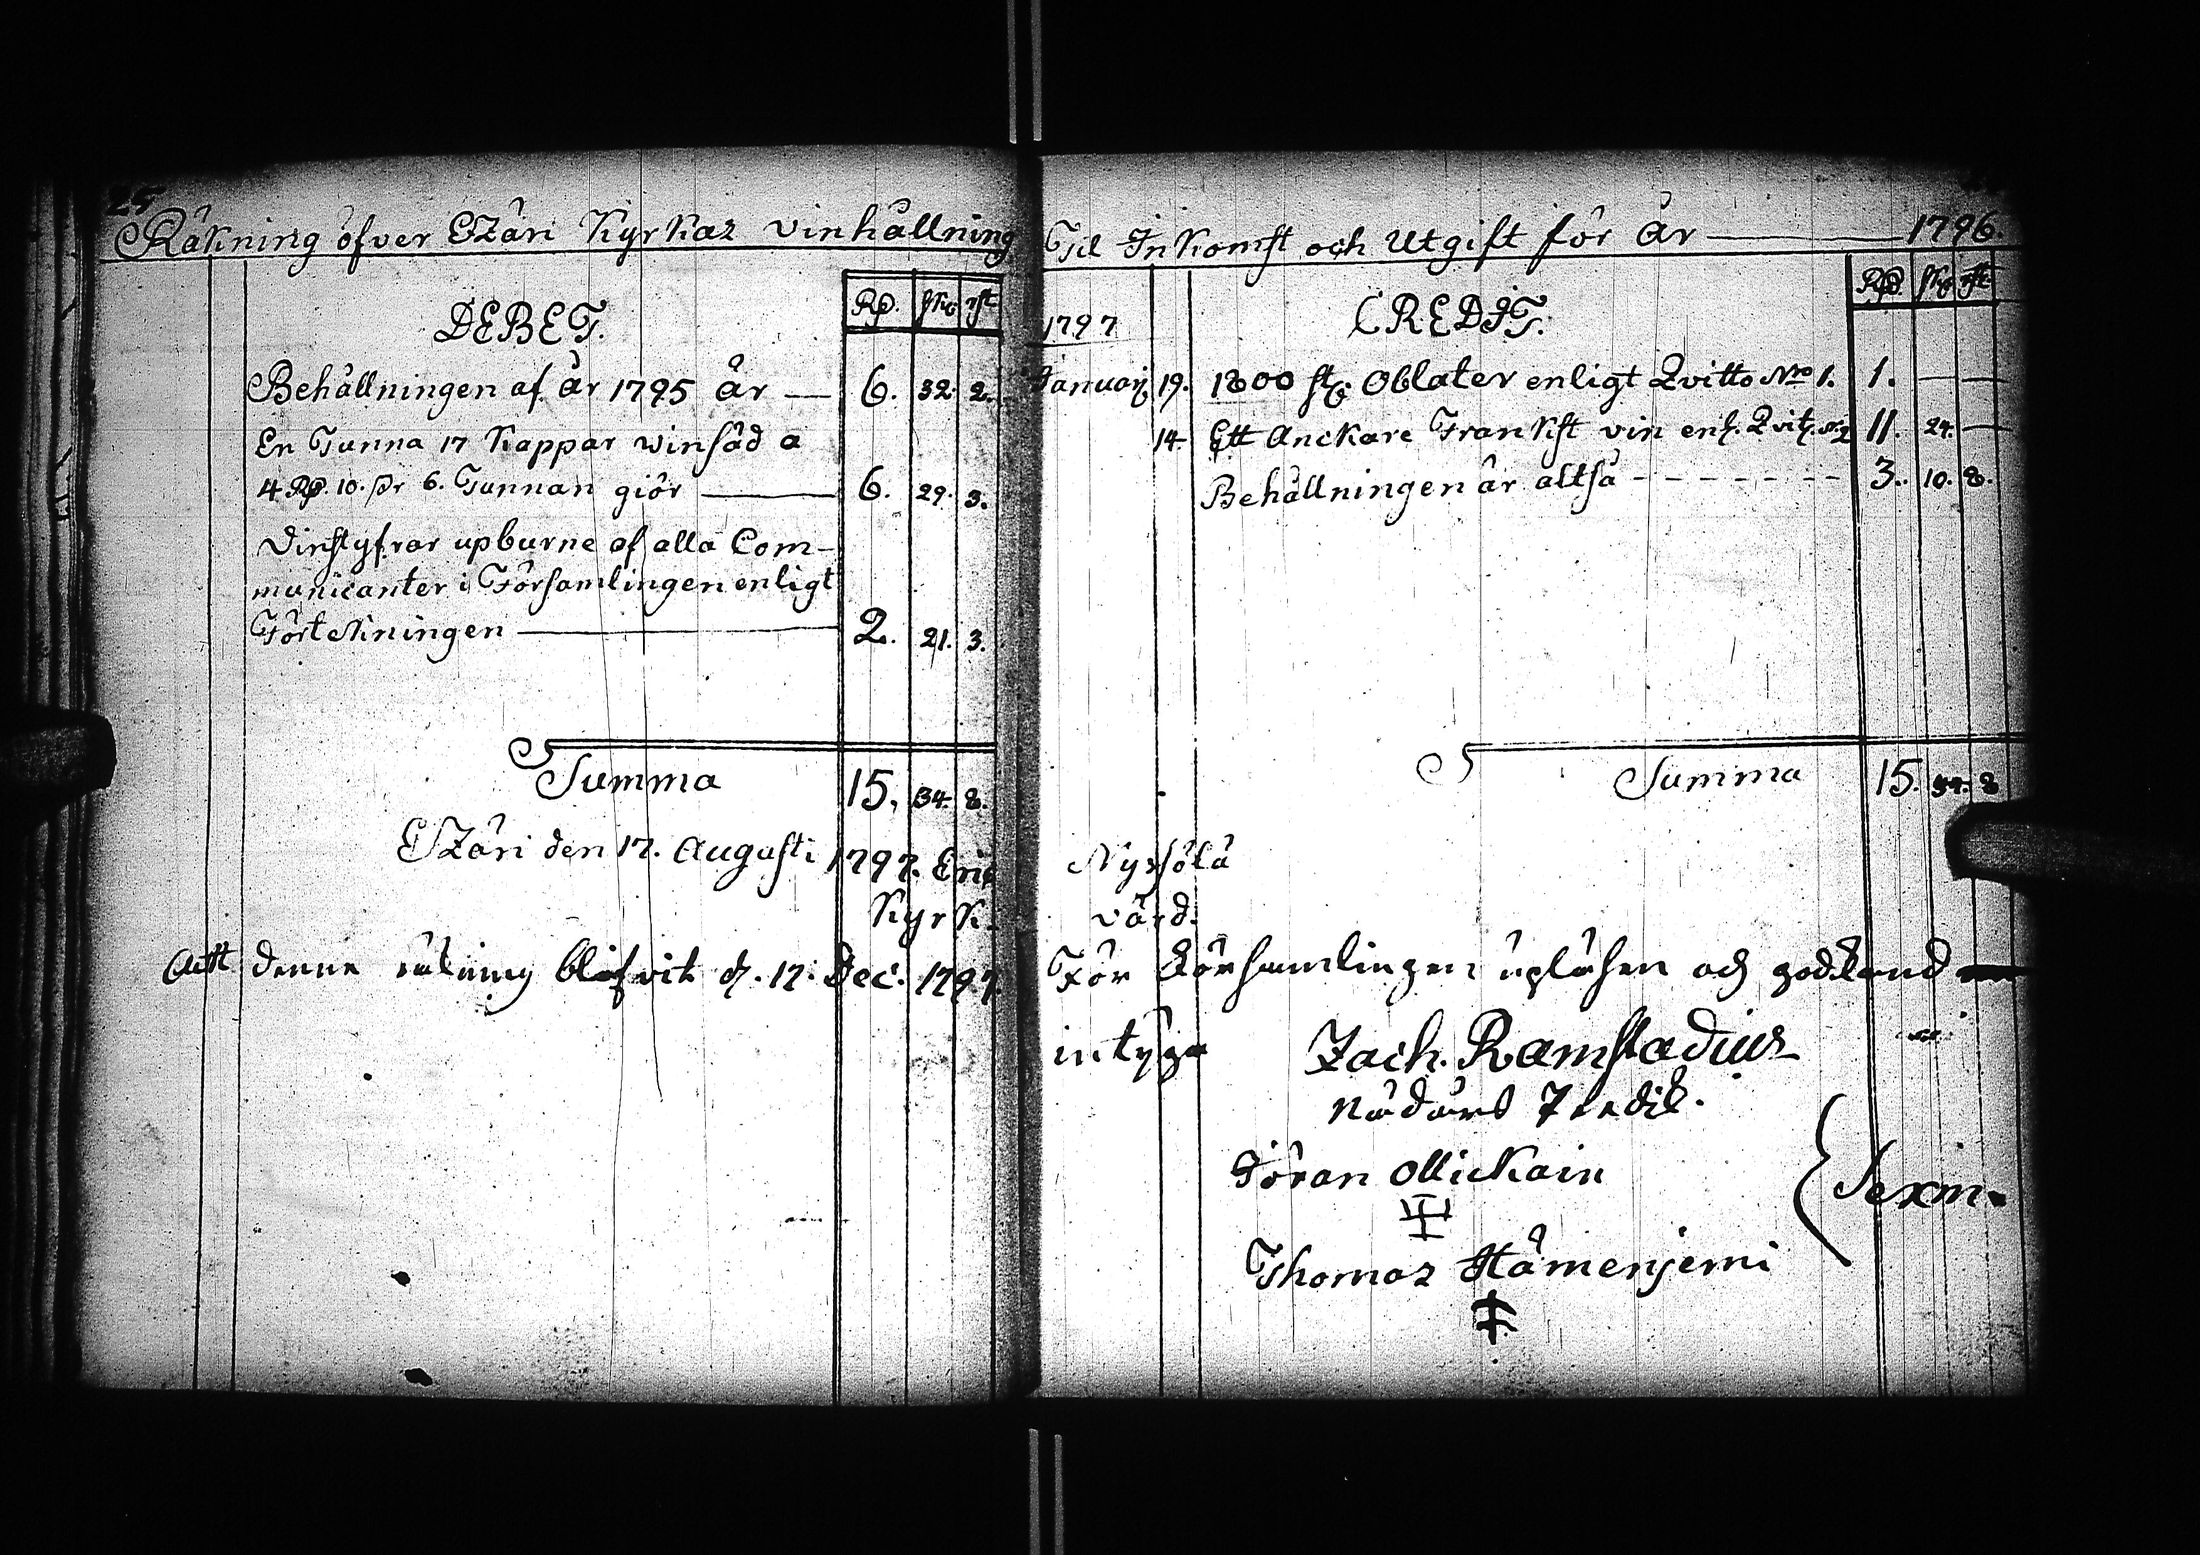 25
Räkning öfver Etzäri Kyrkas vinhållning
DEBET.
Rd. sk: rst
Behållningen af år 1795 är — 6. 32. 2.
En Tunna 17 Kappar vinsäd a
4 Rd. 10. sk 6. Tunnan giör — 6. 29. 3.
Vinstyfrar upburne af alla Com-
municanter i Församlingen enligt
Förtekningen — 2. 21. 3.
Summa 15. 34. 8.
Etzäri den 17. Augusti 1797. Eric
Kyrk.
Att denne räkning blifvit d. 17. Dec. 1797.
Til Inkomst och Utgift för år — 1796.
CREDIT.
Rd. sk: rst
1797
Januarij 19. 1800 st: Oblater enligt Qvitto No 1. 1. — —
14. Ett Anckare Franskt vin enl. Qvit. N:2 11. 24. —
Behållningen är altså - - - - - - - 3. 10. 8.
Summa 15. 34. 8
Nyrsölä
värd.
För Församlingen upläsen och godkänd
intyga
Zach. Ramstadius
Nådårs Predik.
Jöran Ollickain
Sexm.
Thomas Hämenjemi